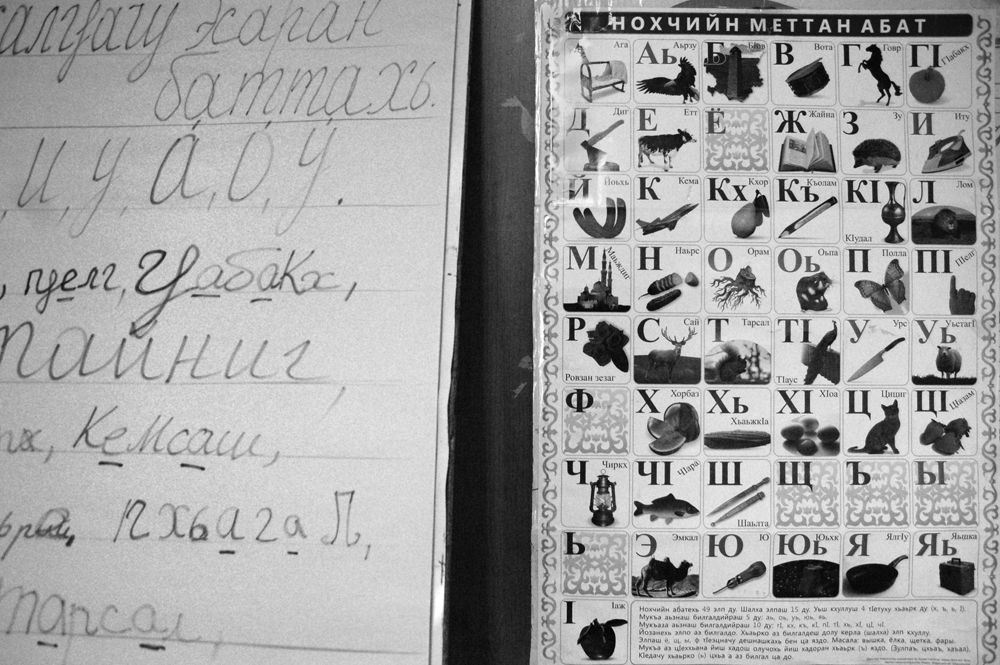 харан
баттахь.
и, у, а, о, у.
пӏелг, цӏабакх,
тайниг
кемсаш,
пхьагал,
тарсал
НОХЧИЙН МЕТТАН АБАТ
Ага Аь Аьрзу Б Бӏов В Вота Г Говр ГӀ ГӀабакх
Д Диг Е Етт Ё Ж Жайна З Зу И Иту
Й Йоьхь К Кема Кх Кхор Къ Къолам КӀ КӀудал Л Лом
М Маьждиг Н Наьрс О Орам Оь Оьпа П Полла ПӀ ПӀелг
Р Ровзан зезаг С Сай Т Тарсал ТӀ ТӀаус У Урс Уь УьстагӀ
Ф Х Хорбаз Хь ХьаьжкӀа ХӀ ХӀоа Ц Цициг ЦӀ ЦӀазам
Ч Чиркх ЧӀ ЧӀара Ш Шаьлта Щ Ъ Ы
Ь Э Эмкал Ю Ю Юь Юьхк Я ЯлгӀу Яь Яьшка
Ӏ Ӏаж
Нохчийн абатехь 49 элп ду. Шалха элпаш 15 ду. Уьш кхуллуш 4 тӀетуху хьаьрк ду (к, ъ, ь, Ӏ).
Мукъа аьзнаш билгалдийраш 5 ду: аь, оь, уь, юь, яь.
Мукъаза аьзнаш билгалдийраш 10 ду: гӀ, кх, къ, кӀ, пӀ, тӀ, хь, хӀ, цӀ, чӀ.
Йозанехь элпо аз билгалдо. Хьаьрко аз билгалдеш долу керла (шалха) элп кхуллу.
Элпаш ё, щ, ы, ф тӀеэцначу дешнашкахь бен ца яздо. Масала: вышка, ёлка, щетка, фары.
Мукъа аз цӀеххьана йиш хадош олучохь йиш хадоран хьаьрк (ъ) яздо. (Зулпаъ, цхьаъ, хаъал).
КӀедачу хьаьрко (ь) цхьа а аз билгал ца до.